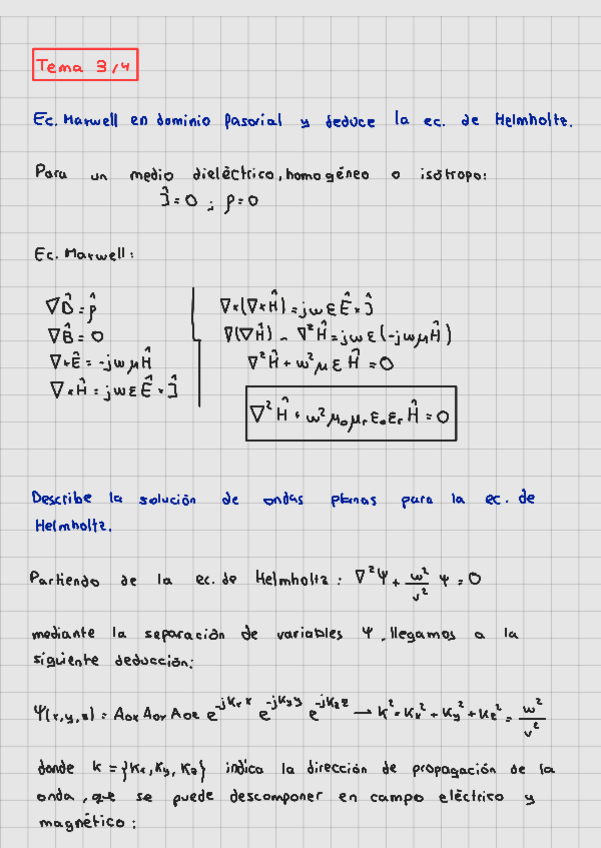 Tema 3/4
Ec. Maxwell en dominio fasorial y deduce la ec. de Helmholtz.
Para un medio dieléctrico, homogéneo o isótropo:
Ĵ=0 ; ρ=0
Ec. Maxwell:
∇D̂ = ρ̂
∇B̂ = 0
∇×Ê = -jωμĤ
∇×Ĥ = jωεÊ + Ĵ
∇×(∇×Ĥ) = jωεÊ + Ĵ
∇(∇Ĥ) - ∇²Ĥ = jωε(-jωμĤ)
∇²Ĥ + ω²μεĤ = 0
∇²Ĥ + ω²μ₀μᵣε₀εᵣĤ = 0
Describe la solución de ondas planas para la ec. de
Helmholtz.
Partiendo de la ec. de Helmholtz: ∇²Ψ + ω²/v² Ψ = 0
mediante la separación de variables Ψ, llegamos a la
siguiente deducción:
Ψ(x,y,z) = A₀ₓ A₀y A₀z e^-jKₓx e^-jKyy e^-jKzz → k² = Kₓ² + Ky² + Kz² = ω²/v²
donde k = {Kₓ, Ky, Kz} indica la dirección de propagación de la
onda, que se puede descomponer en campo eléctrico y
magnético: